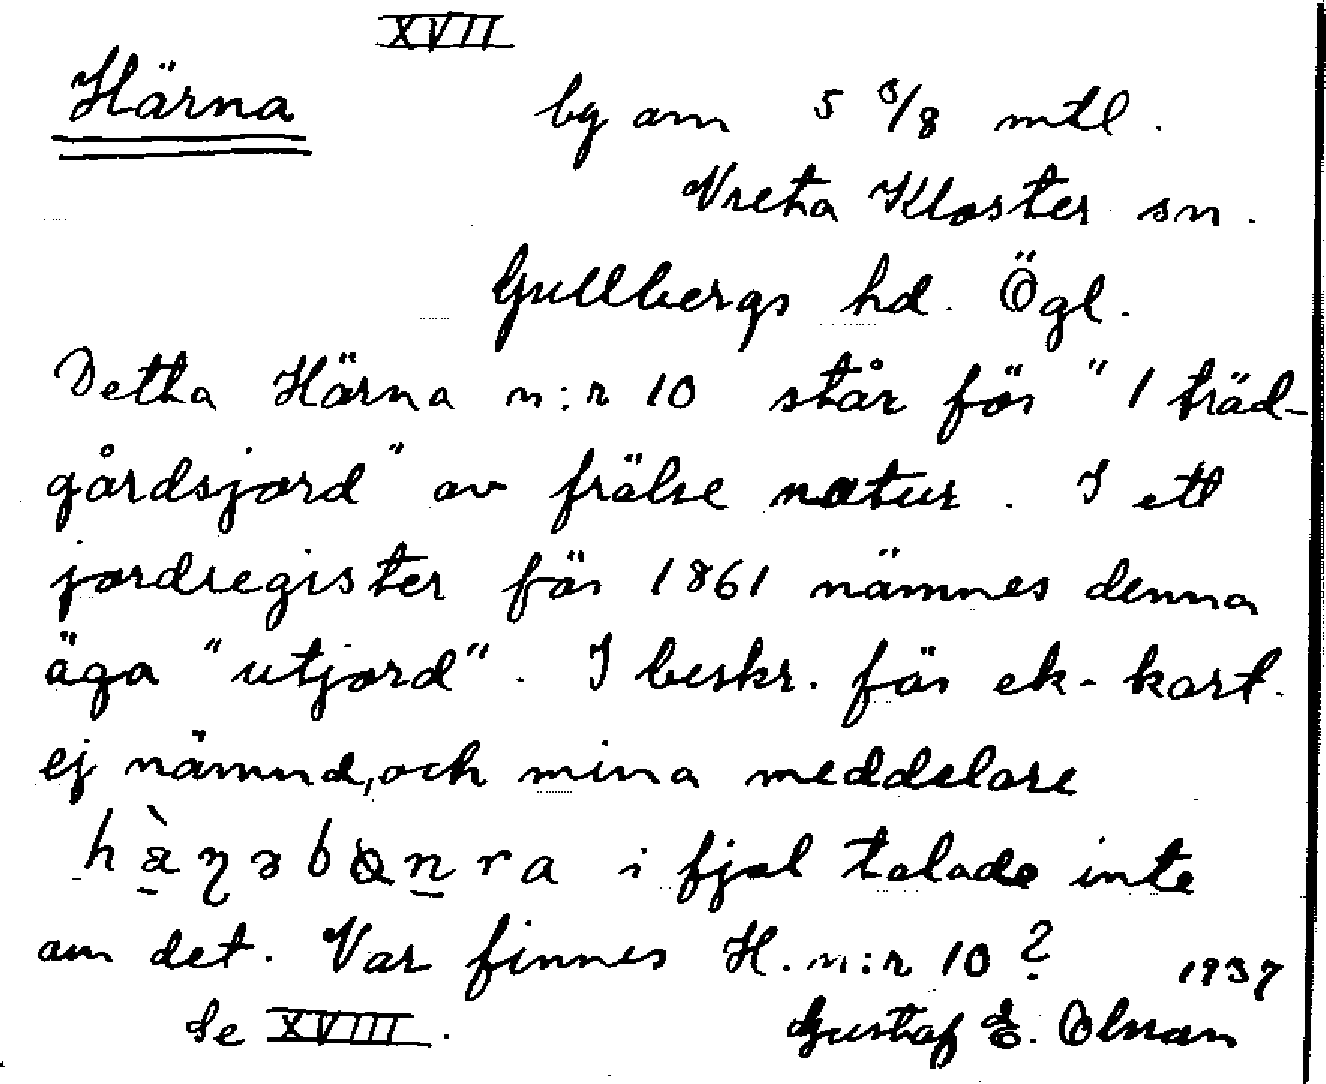 XVII
Härna by om 5 3/8 mtl.
Vreta Kloster sn.
Gullbergs hd. Ögl.
Detta Härna n:r 10 står för "1 träd-
gårdsjord" av frälse natur. I ett
jordregister för 1861 nämnes denna
äga "utjord". I beskr. för ek-kart.
ej nämnd, och mina meddelare
i fjol talade inte
om det. Var finnes H. n:r 10? 1937
Se XVIII. Gustaf E. Olsson